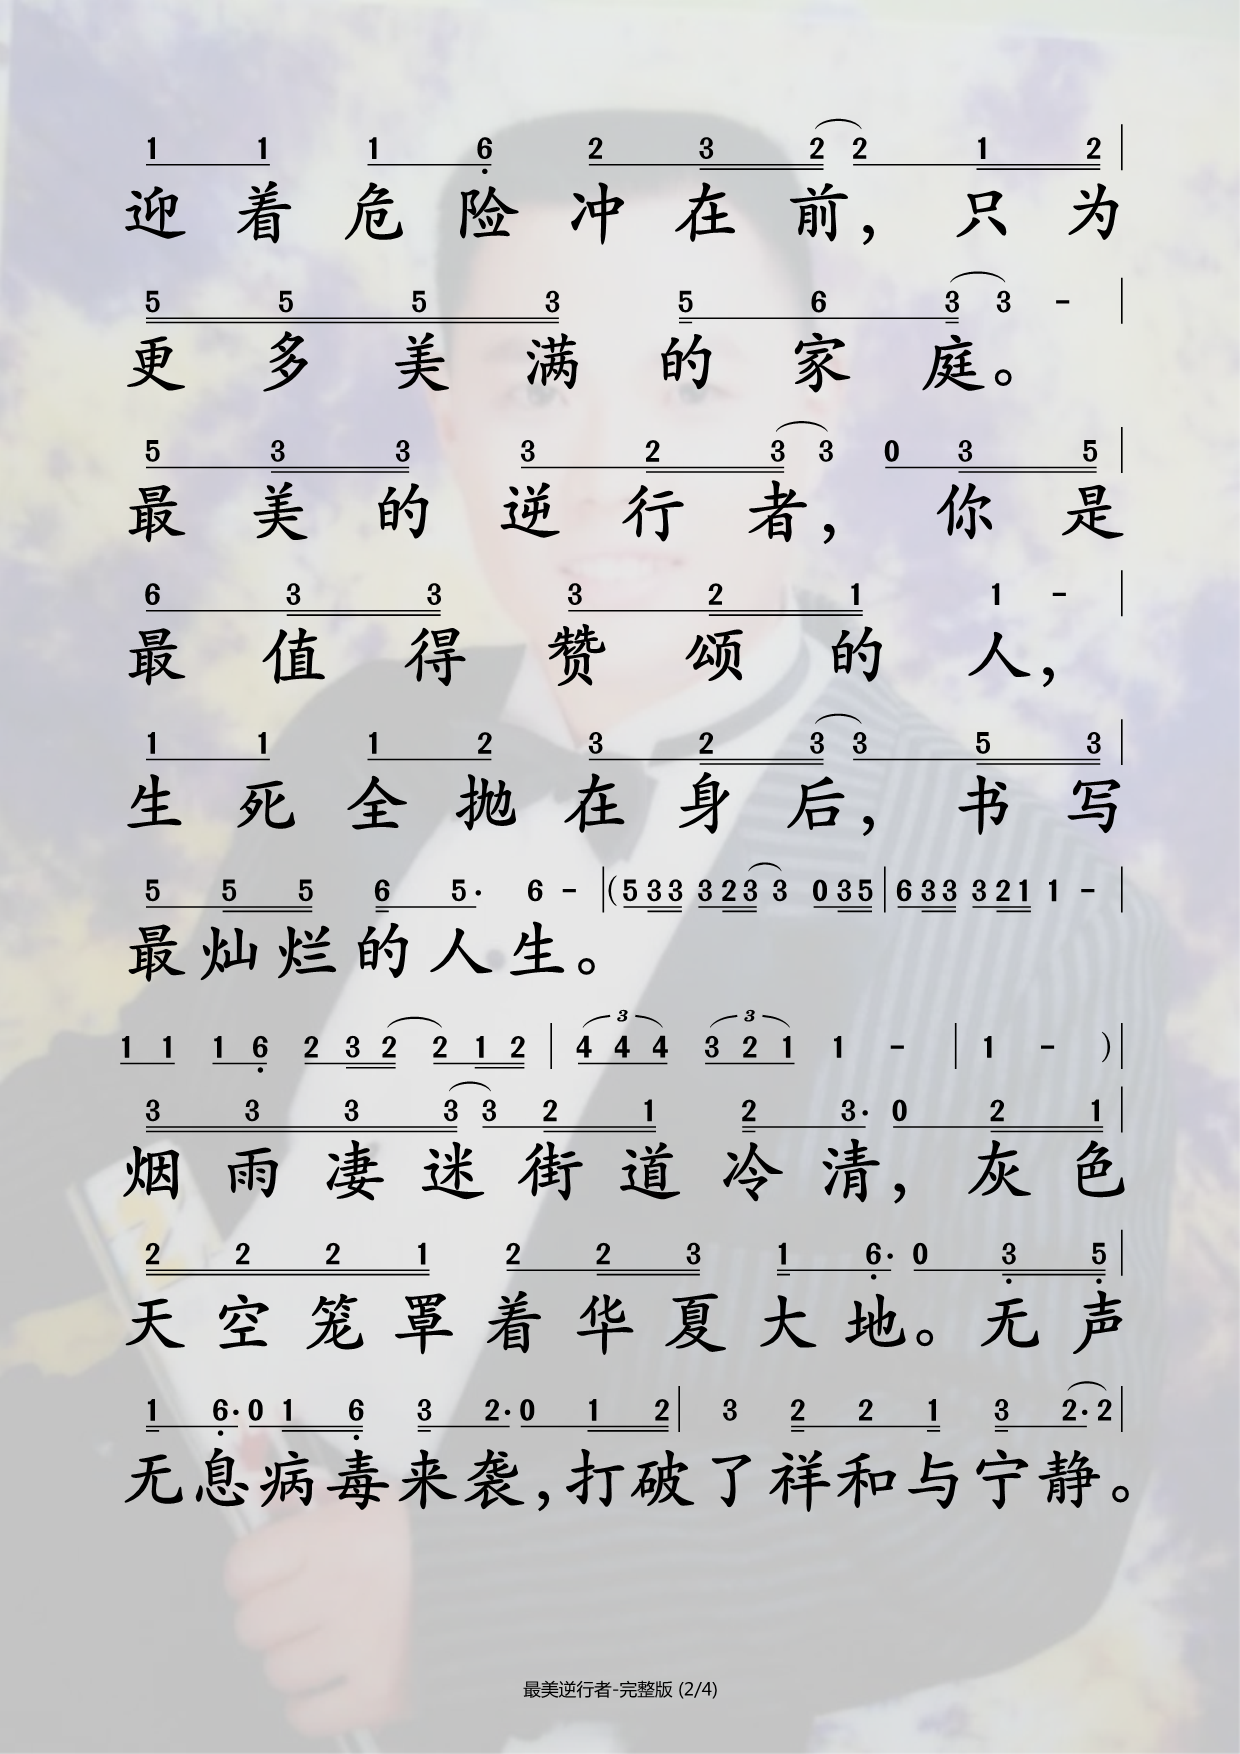 1 1 1 6 2 3 2 2 1 2
迎着危险冲在前，只为
5 5 5 3 5 6 3 3 -
更多美满的家庭。
5 3 3 3 2 3 3 0 3 5
最美的逆行者，你是
6 3 3 3 2 1 1 -
最值得赞颂的人，
1 1 1 2 3 2 3 3 5 3
生死全抛在身后，书写
5 5 5 6 5· 6 - (5 3 3 3 2 3 3 0 3 5 6 3 3 3 2 1 1 -
最灿烂的人生。
1 1 1 6 2 3 2 2 1 2 4 4 4 3 2 1 1 - 1 - )
3 3 3 3 3 2 1 2 3· 0 2 1
烟雨凄迷街道冷清，灰色
2 2 2 1 2 2 3 1 6· 0 3 5
天空笼罩着华夏大地。无声
1 6· 0 1 6 3 2· 0 1 2 3 2 2 1 3 2· 2
无息病毒来袭，打破了祥和与宁静。
最美逆行者-完整版 (2/4)